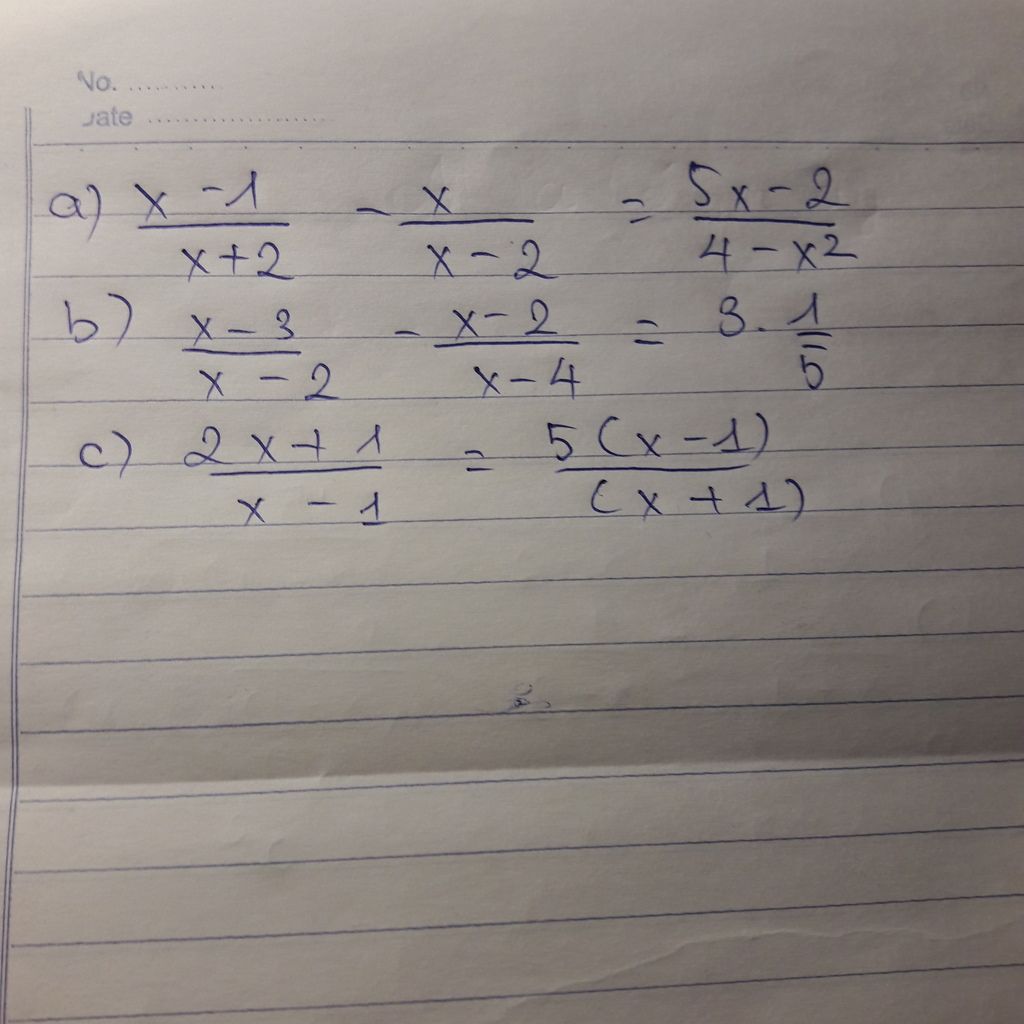 No. ..........
Date ....................
a) \frac{x-1}{x+2} - \frac{x}{x-2} = \frac{5x-2}{4-x^2}
b) \frac{x-3}{x-2} - \frac{x-2}{x-4} = 3 \cdot \frac{1}{5}
c) \frac{2x+1}{x-1} = \frac{5(x-1)}{(x+1)}